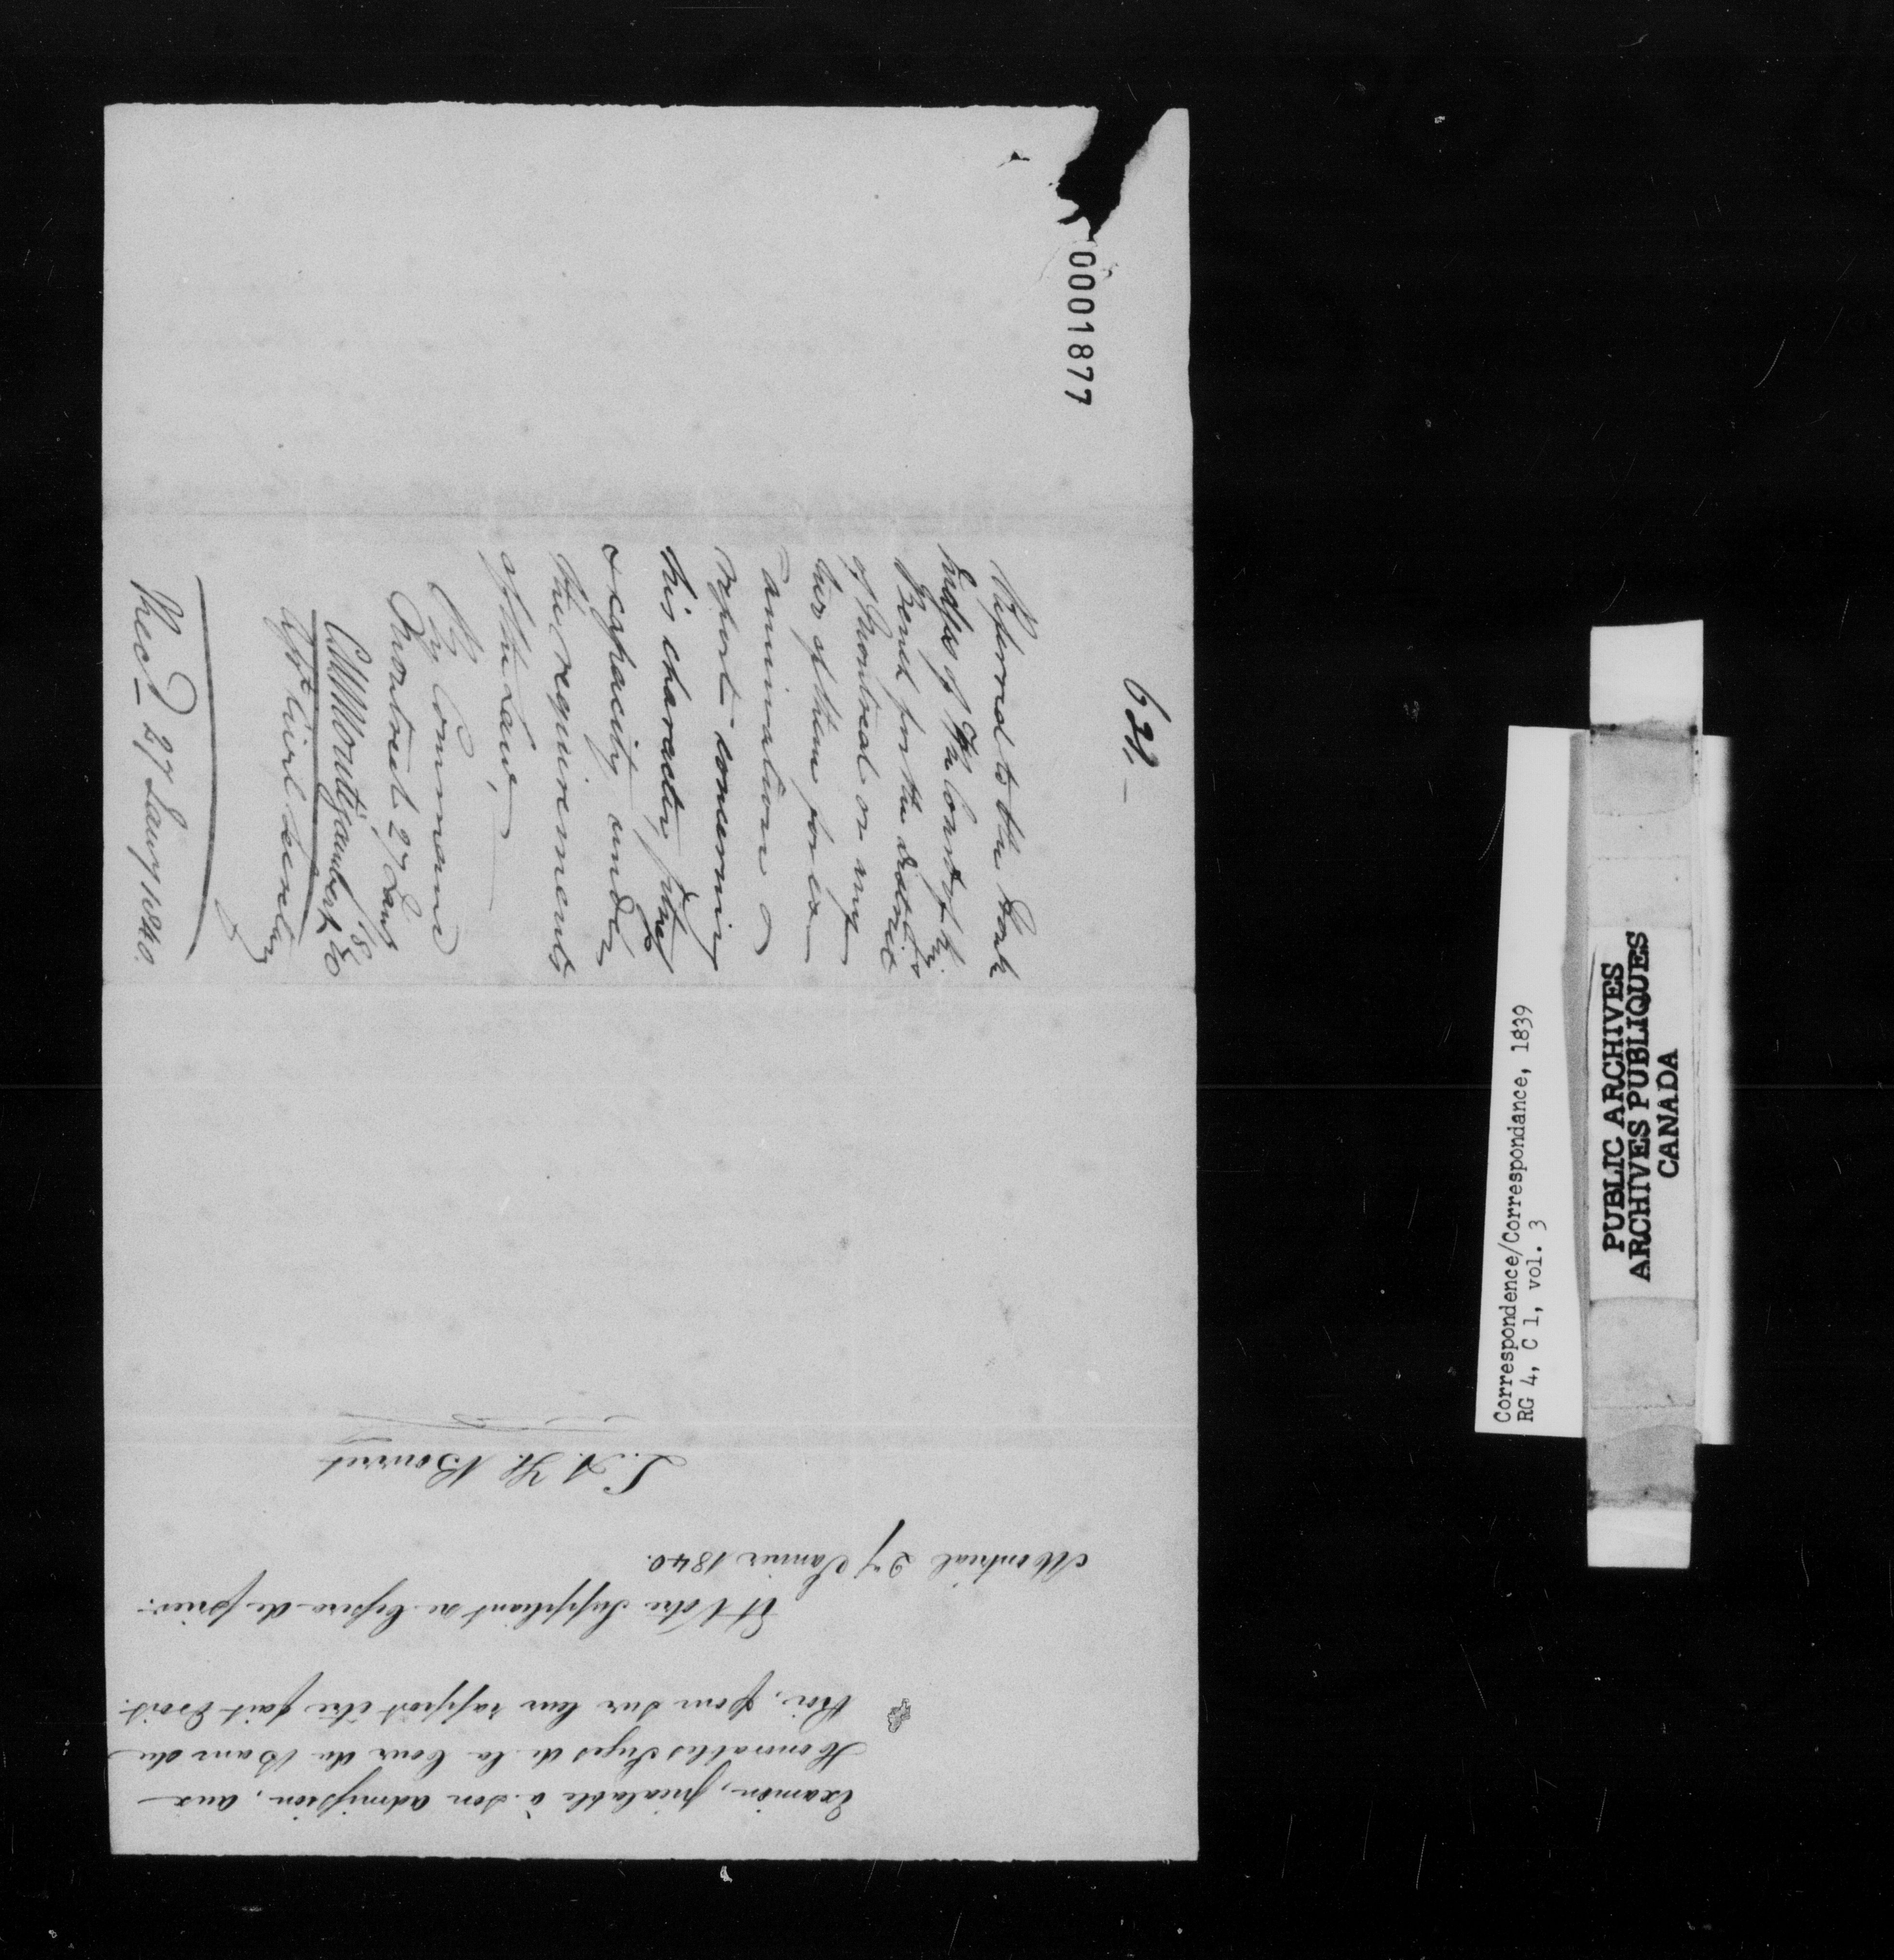 0001877
631.
Referred to the Honble
Judges of the Court of Kgs
Bench for the District
of Montreal or any
two of them for ex
amination &
report concerning
his character fitness
& capacity under
the requirements
of the Law,
By Command
Montreal 27 Jany
1840
Asst Civil Secretary
Recd 27 Jany 1840.
Examen, préalable à son admission, aux
Honorables Juges de la Cour du Banc du
Roi, pour sur leur rapport être fait droit.
Et Votre Suppliant ne Cessera de prier.
Montréal 27 Janvier 1840.
L. A. H. Bourret
Correspondence/Correspondance, 1839
RG 4, C 1, vol. 3
PUBLIC ARCHIVES
ARCHIVES PUBLIQUES
CANADA